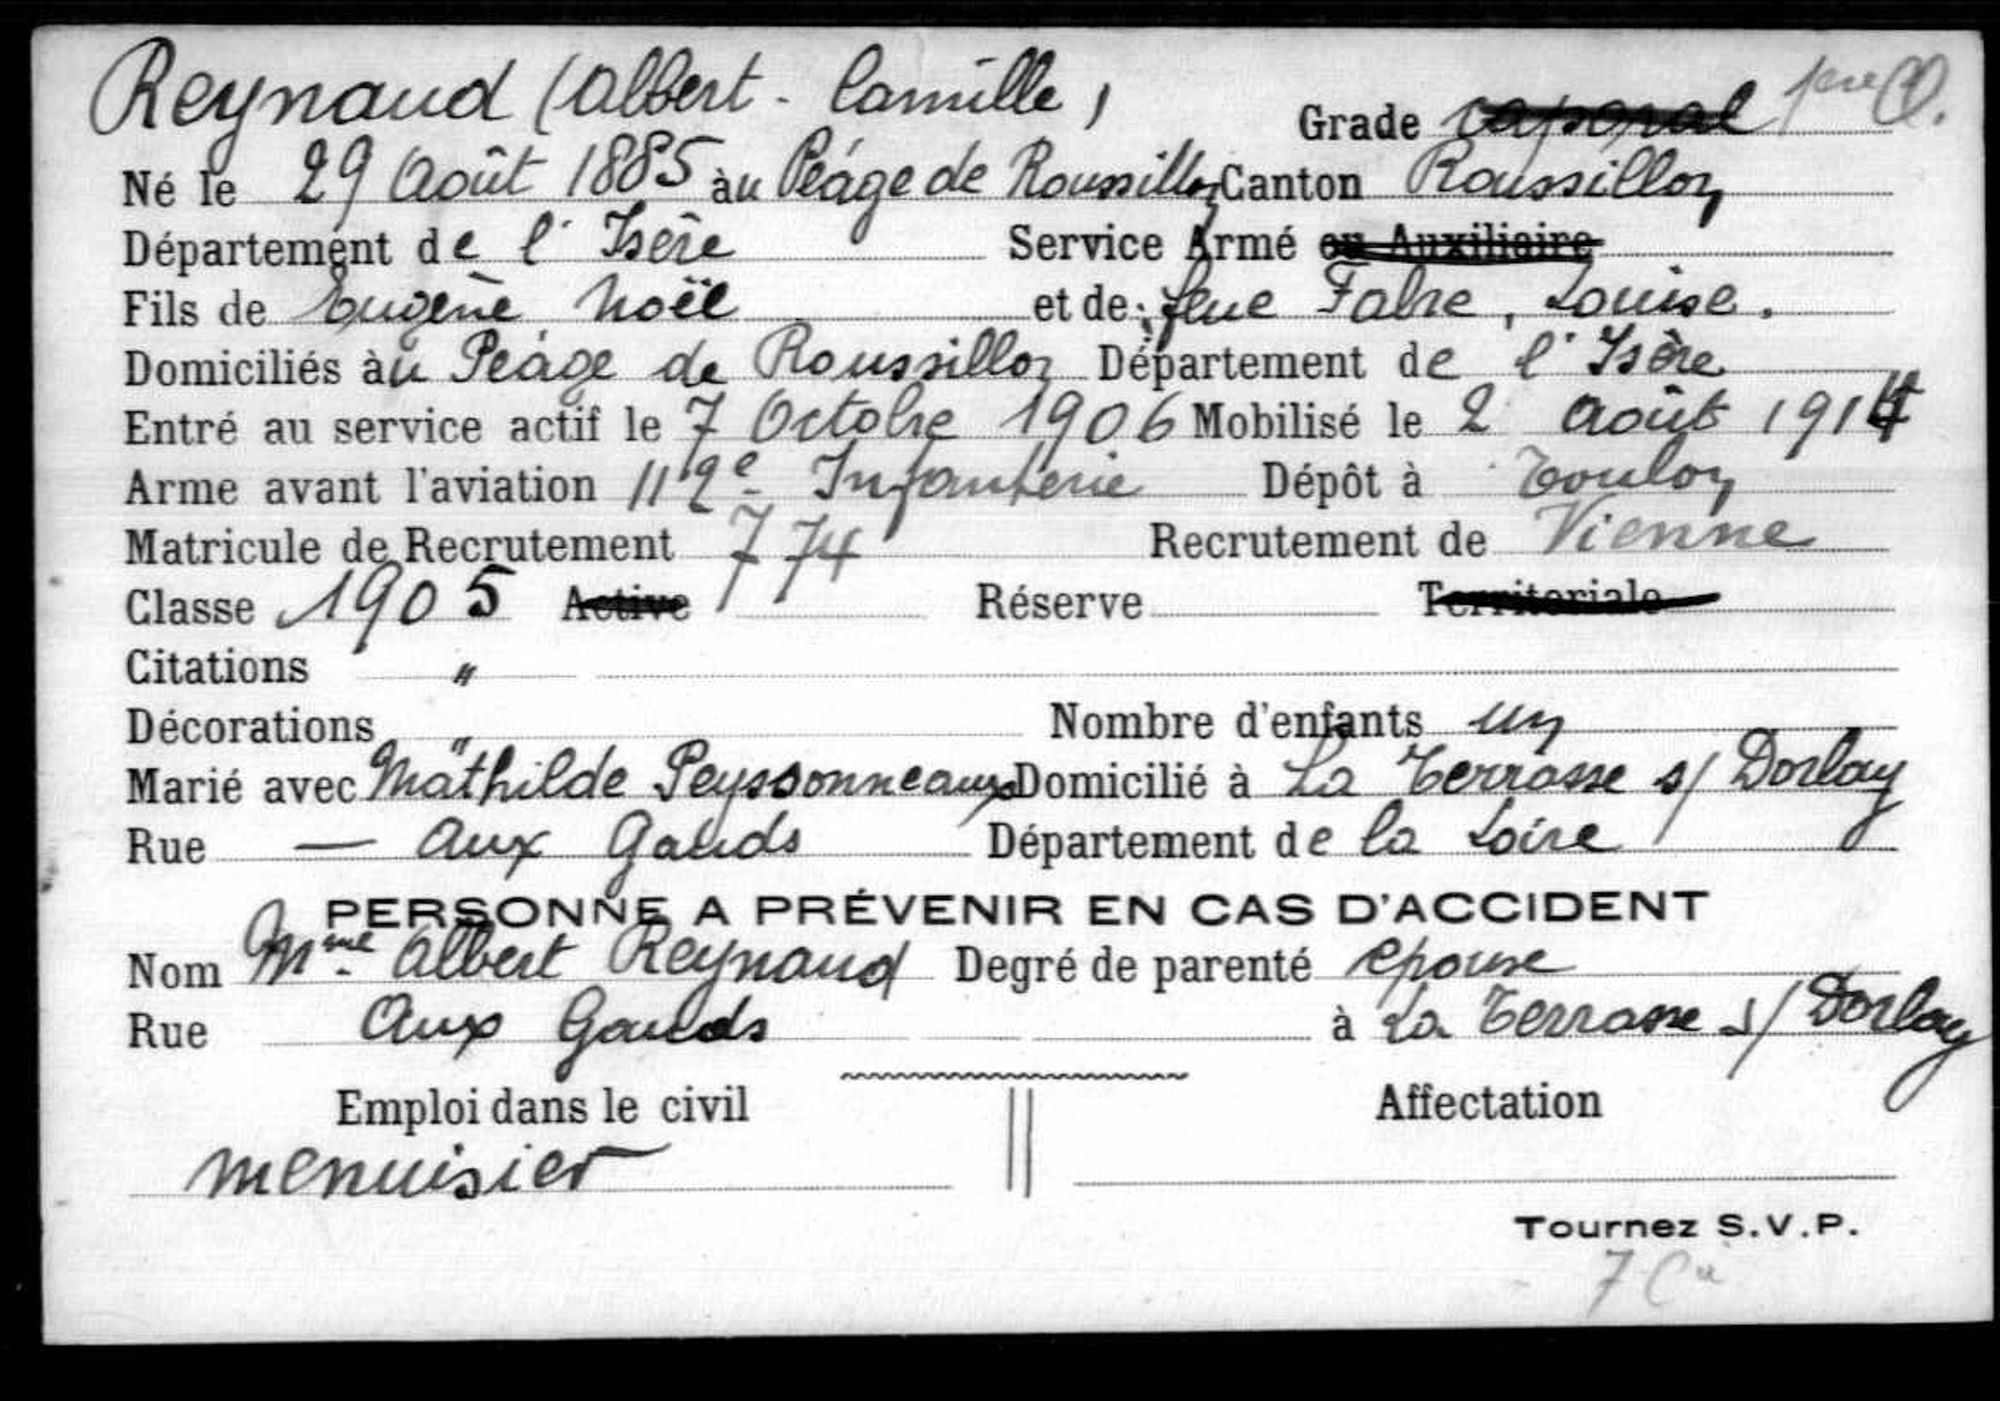 Reynaud (Albert - Camille)
Grade caporal 1ere Cl.
Né le 29 Août 1885 àu Péage de Roussillon Canton Roussillon
Département de l'Isère Service Armé ou Auxiliaire
Fils de Eugène Noël et de feue Fabre, Louise.
Domiciliés àu Péage de Roussillon Département de l'Isère
Entré au service actif le 7 Octobre 1906 Mobilisé le 2 Août 1914
Arme avant l'aviation 112e Infanterie Dépôt à Toulon
Matricule de Recrutement 774 Recrutement de Vienne
Classe 1905 Active Réserve Territoriale
Citations "
Décorations " Nombre d'enfants un
Marié avec Mathilde Peyssonneaux Domicilié à La Terrasse s/ Dorlay
Rue — Aux Gauds Département de la Loire
PERSONNE A PRÉVENIR EN CAS D'ACCIDENT
Nom Mme Albert Reynaud Degré de parenté epouse
Rue Aux Gauds à La Terrasse s/ Dorlay
Emploi dans le civil Affectation
menuisier
Tournez S.V.P.